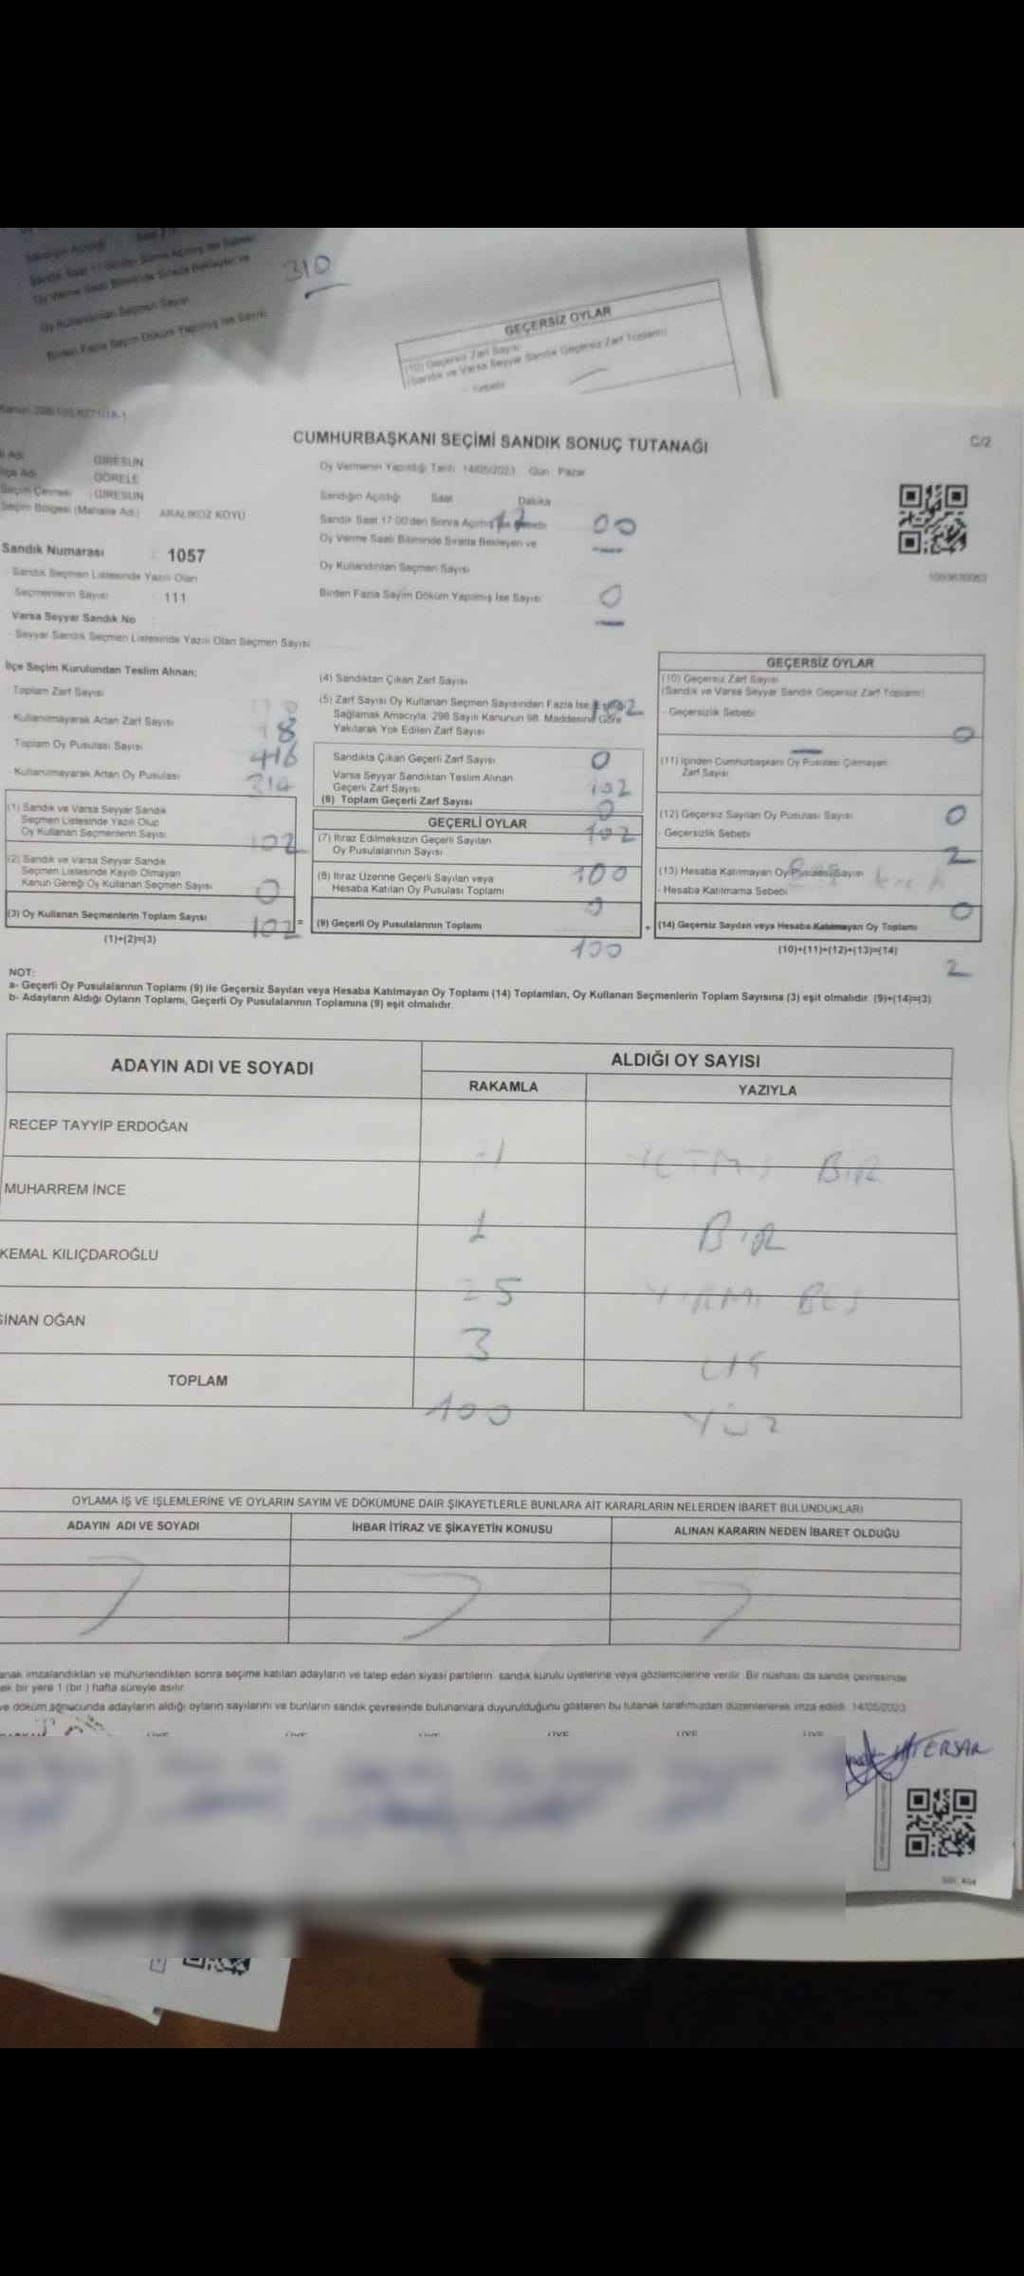 310
Oy Kullandırılan Seçmen Sayısı
Birden Fazla Sayım Döküm Yapılmış İse Sayısı
GEÇERSİZ OYLAR
(10) Geçersiz Zarf Sayısı
(Sandık ve Varsa Seyyar Sandık Geçersiz Zarf Toplamı)
CUMHURBAŞKANI SEÇİMİ SANDIK SONUÇ TUTANAĞI
C/2
GİRESUN
GÖRELE
Seçim Çevresi : GİRESUN
Seçim Bölgesi (Mahalle Adı) ARALIKOZ KÖYÜ
Oy Vermenin Yapıldığı Tarih 14/05/2023 Gün: Pazar
Sandığın Açıldığı Saat Dakika
Sandık Saat 17:00'den Sonra
00
Oy Verme Saati Bitiminde Sırada Bekleyen ve
Oy Kullandırılan Seçmen Sayısı
Birden Fazla Sayım Döküm Yapılmış İse Sayısı 0
Sandık Numarası : 1057
Sandık Seçmen Listesinde Yazılı Olan
Seçmenlerin Sayısı 111
Varsa Seyyar Sandık No
- Seyyar Sandık Seçmen Listesinde Yazılı Olan Seçmen Sayısı
İlçe Seçim Kurulundan Teslim Alınan:
Toplam Zarf Sayısı
Kullanılmayarak Artan Zarf Sayısı 8
Toplam Oy Pusulası Sayısı 416
Kullanılmayarak Artan Oy Pusulası 314
(1) Sandık ve Varsa Seyyar Sandık
Seçmen Listesinde Yazılı Olup
Oy Kullanan Seçmenlerin Sayısı 102
(2) Sandık ve Varsa Seyyar Sandık
Seçmen Listesinde Kaydı Olmayan
Kanun Gereği Oy Kullanan Seçmen Sayısı 0
(3) Oy Kullanan Seçmenlerin Toplam Sayısı 102 =
(1)+(2)=(3)
(4) Sandıktan Çıkan Zarf Sayısı
(5) Zarf Sayısı Oy Kullanan Seçmen Sayısından Fazla İse 102
Sağlamak Amacıyla, 298 Sayılı Kanunun 98. Maddesine Göre
Yakılarak Yok Edilen Zarf Sayısı
Sandıkta Çıkan Geçerli Zarf Sayısı 0
Varsa Seyyar Sandıktan Teslim Alınan
Geçerli Zarf Sayısı 102
(6) Toplam Geçerli Zarf Sayısı 0
GEÇERLİ OYLAR
102
(7) İtiraz Edilmeksizin Geçerli Sayılan
Oy Pusulalarının Sayısı
100
(8) İtiraz Üzerine Geçerli Sayılan veya
Hesaba Katılan Oy Pusulası Toplamı
0
(9) Geçerli Oy Pusulalarının Toplamı +
100
GEÇERSİZ OYLAR
(10) Geçersiz Zarf Sayısı
(Sandık ve Varsa Seyyar Sandık Geçersiz Zarf Toplamı)
- Geçersizlik Sebebi
0
(11) İçinden Cumhurbaşkanı Oy Pusulası Çıkmayan
Zarf Sayısı
(12) Geçersiz Sayılan Oy Pusulası Sayısı 0
- Geçersizlik Sebebi
2
(13) Hesaba Katılmayan Oy Pusulası Sayısı
- Hesaba Katılmama Sebebi
0
(14) Geçersiz Sayılan veya Hesaba Katılmayan Oy Toplamı
(10)+(11)+(12)+(13)=(14)
2
NOT:
a- Geçerli Oy Pusulalarının Toplamı (9) ile Geçersiz Sayılan veya Hesaba Katılmayan Oy Toplamı (14) Toplamları, Oy Kullanan Seçmenlerin Toplam Sayısına (3) eşit olmalıdır. (9)+(14)=(3)
b- Adayların Aldığı Oyların Toplamı, Geçerli Oy Pusulalarının Toplamına (9) eşit olmalıdır.
ADAYIN ADI VE SOYADI
ALDIĞI OY SAYISI
RAKAMLA
YAZIYLA
RECEP TAYYİP ERDOĞAN
YETMİŞ BİR
MUHARREM İNCE
1 BİR
KEMAL KILIÇDAROĞLU
25 YİRMİ BEŞ
SİNAN OĞAN
3 ÜÇ
TOPLAM
100 YÜZ
OYLAMA İŞ VE İŞLEMLERİNE VE OYLARIN SAYIM VE DÖKÜMÜNE DAİR ŞİKAYETLERLE BUNLARA AİT KARARLARIN NELERDEN İBARET BULUNDUKLARI
ADAYIN ADI VE SOYADI
İHBAR İTİRAZ VE ŞİKAYETİN KONUSU
ALINAN KARARIN NEDEN İBARET OLDUĞU
anak imzalandıktan ve mühürlendikten sonra seçime katılan adayların ve talep eden siyasi partilerin sandık kurulu üyelerine veya gözlemcilerine verilir. Bir nüshası da sandık çevresinde
ek bir yere 1 (bir) hafta süreyle asılır.
ve döküm sonucunda adayların aldığı oyların sayılarını ve bunların sandık çevresinde bulunanlara duyurulduğunu gösteren bu tutanak tarafımızdan düzenlenerek imza edildi. 14/05/2023